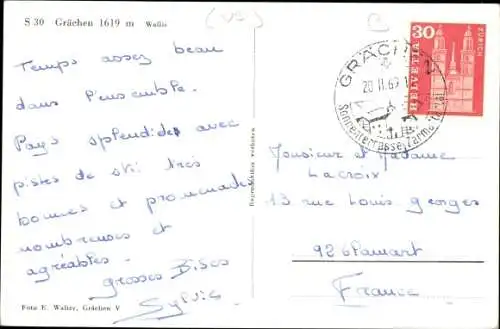 S 30 Grächen 1619 m Wallis
Temps assez beau
dans l'ensemble.
Pays splendides avec
pistes de ski très
bonnes et promenades
nombreuses et
agréables.
grosses Bises
Sylvie
Foto E. Walter, Grächen V
Reproduktion verboten
GRÄCHEN
20.11.69
Sonnenterrasse
HELVETIA
30
ZÜRICH
Monsieur et Madame
Lacroix
13 rue Louis Georges
92 Clamart
France